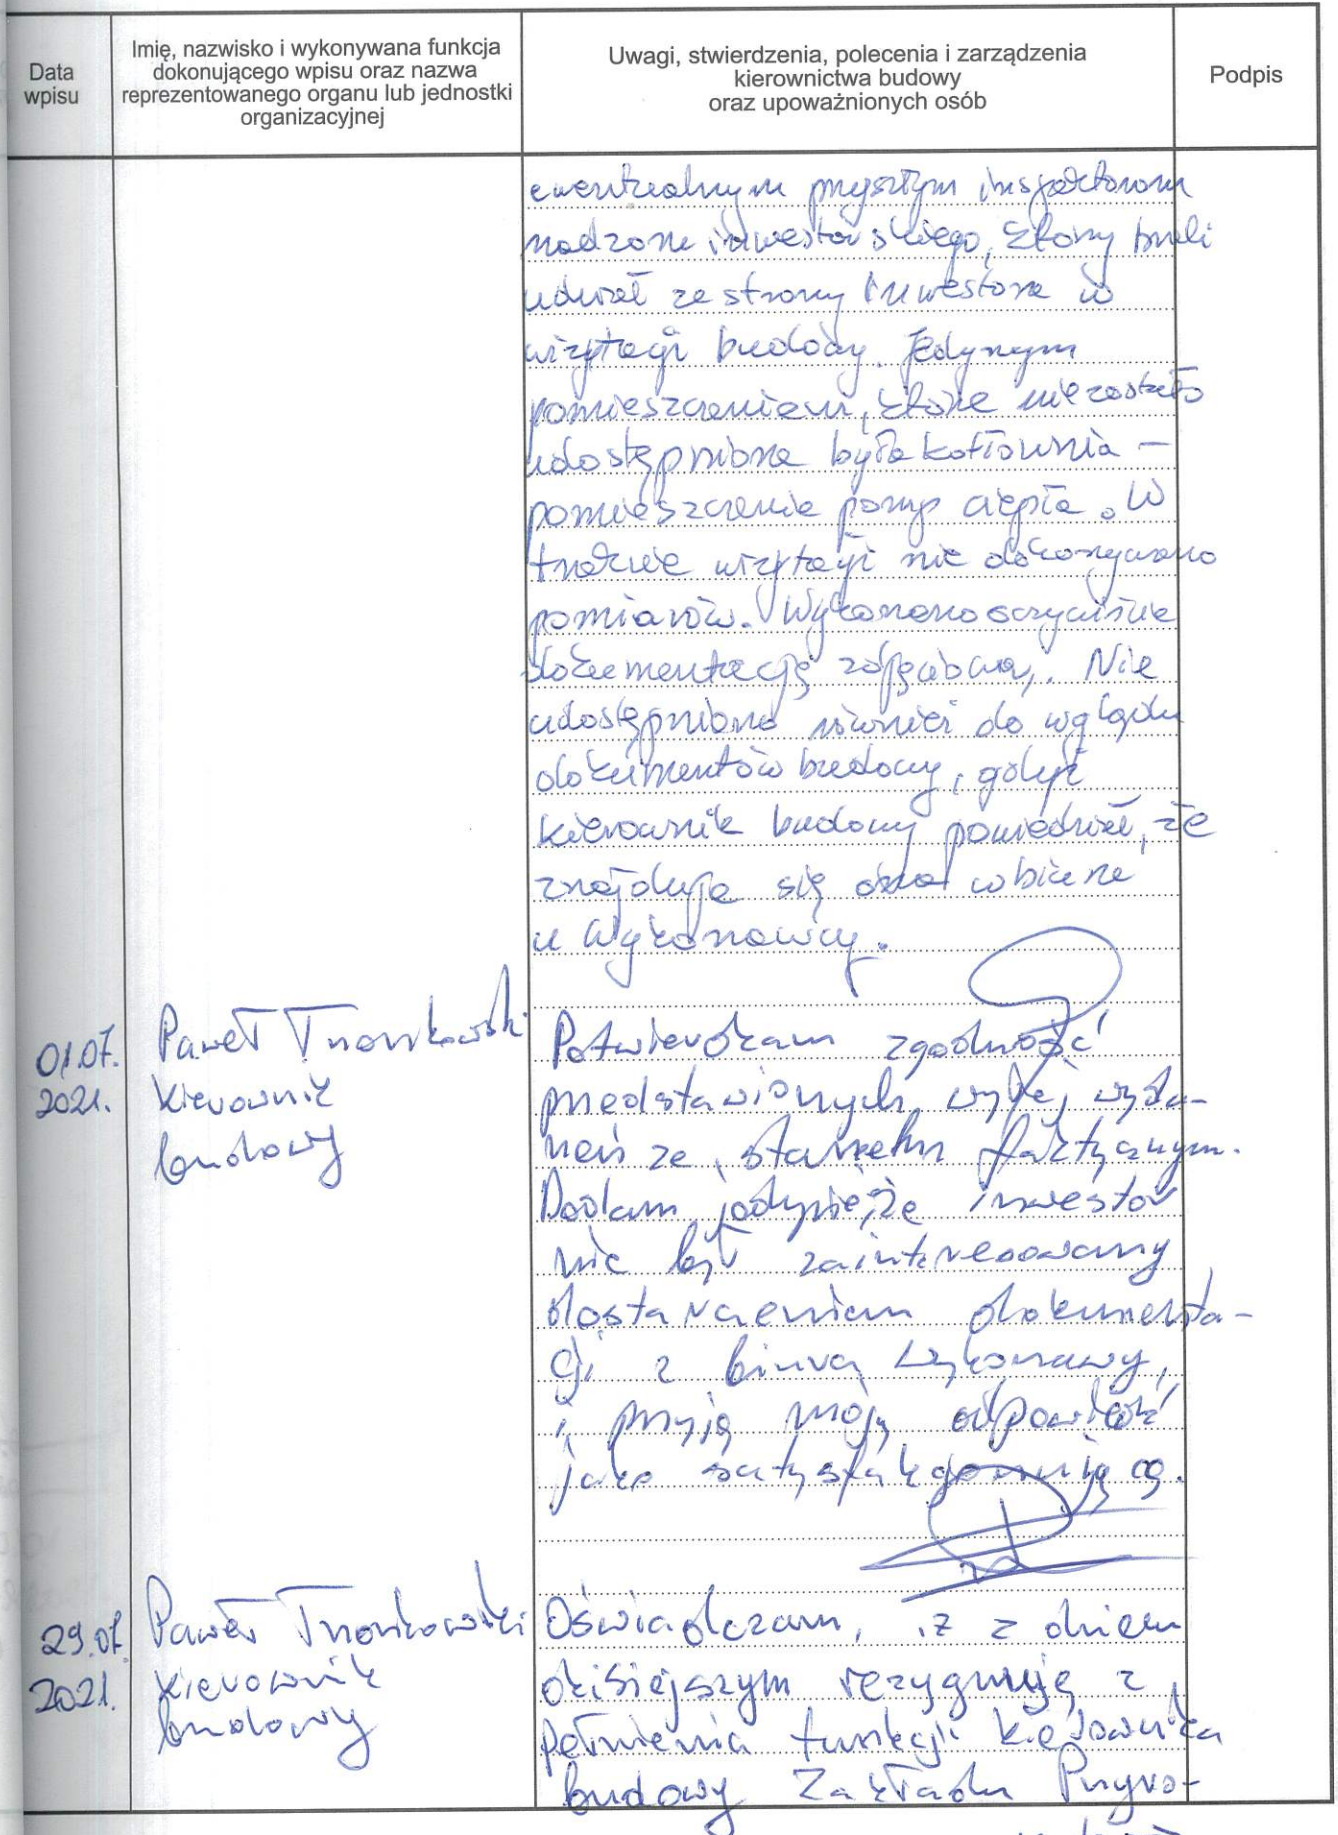 Data
wpisu
Imię, nazwisko i wykonywana funkcja
dokonującego wpisu oraz nazwa
reprezentowanego organu lub jednostki
organizacyjnej
Uwagi, stwierdzenia, polecenia i zarządzenia
kierownictwa budowy
oraz upoważnionych osób
Podpis
ewentualnym przyszłym inspektorom
nadzoru inwestorskiego, którzy brali
udział ze strony Inwestora w
wizytacji budowy. Jedynym
pomieszczeniem, które nie zostało
udostępnione była kotłownia –
pomieszczenie pomp ciepła. W
trakcie wizytacji nie dokonywano
pomiarów. Wykonano oczywiście
dokumentację zdjęciową. Nie
udostępniono również do wglądu
dokumentów budowy, gdyż
kierownik budowy powiedział, że
znajduje się w biurze
u Wykonawcy.
01.07.
2021.
Paweł
Kierownik
budowy
Potwierdzam zgodność
przedstawionych wyżej wyda-
rzeń ze stanem faktycznym.
Dodam jedynie, że inwestor
nie był zainteresowany
dostarczeniem dokumenta-
cji z biura wykonawcy,
i przyją moją odpowiedź
jako satysfakcjonującą.
29.07
2021.
Paweł
Kierownik
budowy
Oświadczam, iż z dniem
dzisiejszym rezygnuję z
pełnienia funkcji kierownika
budowy Zakładu Przyro-